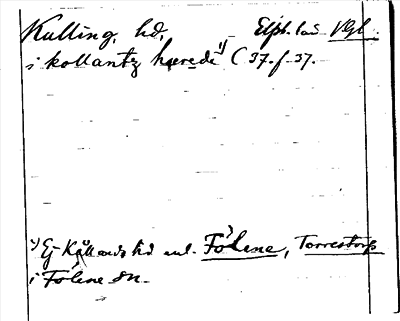 Kulling, hd, Elfsb. län Vgl.
i kollantz hærede ¹⁾ ( 37. f. 37.
¹⁾ Ej Kållands hd utl. Fölene, Torrestorp
i Fölene sn.